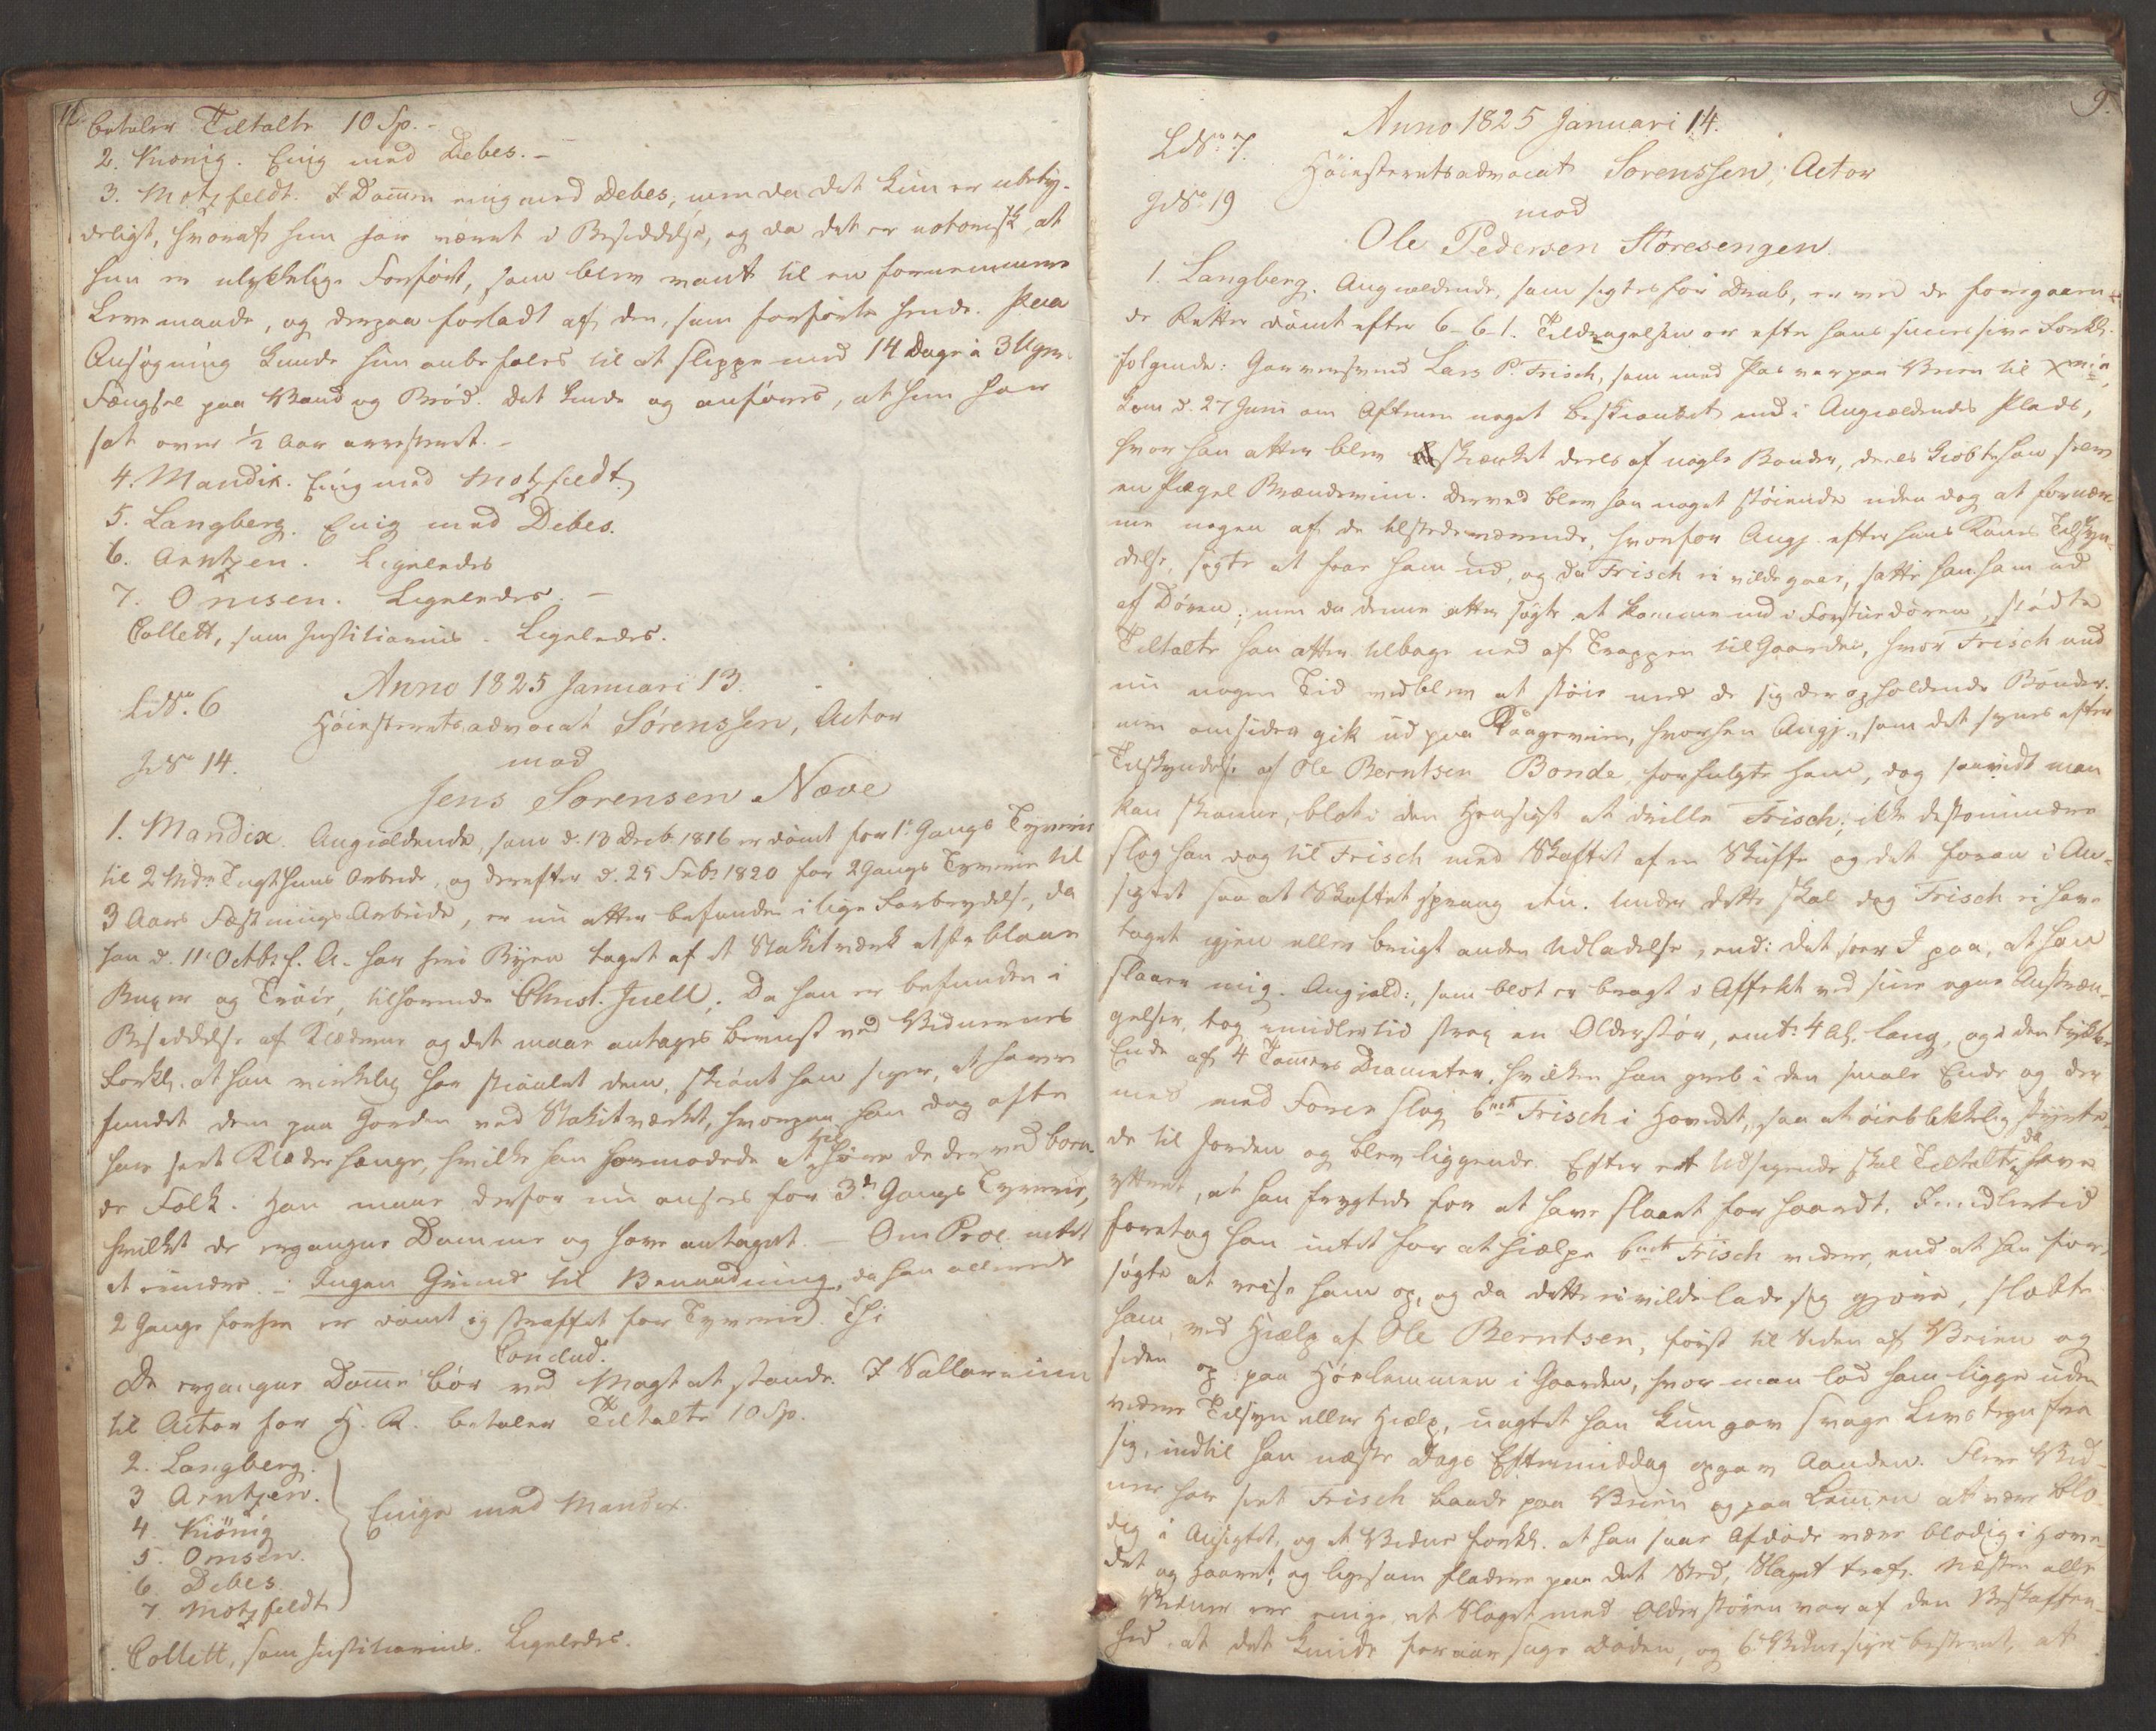 betaler Tiltalte 10 Sp. -
2. Kiönig. Enig med Debes. -
3. Motzfeldt. I Dommen enig med Debes, men da det kun er ubety-
deligt, hvoraf hun har været i Besiddelse, og da det er notorisk, at
hun er ulykkelige Forført, som blev vant til en fornemmere
Levemaade, og derpaa forladt af den, som forførte hende. Paa
Ansøgning kunde hun anbefales til at slippe med 14 Dage à 3 Uger
Fængsel paa Vand og Brød. Det kunde og anføres, at hun har
sat over ½ Aar arresteret. -
4. Mandix. Enig med Motzfeldt
5. Langberg. Enig med Debes.
6. Arntzen. Ligeledes
7. Omsen. Ligeledes. -
Collett, som Justitiarius. Ligeledes.
Anno 1825 Januari 13.
LNo. 6
Høiesteretsadvocat Sørenssen, Actor
JNo 14.
mod
Jens Sørensen Næve
1. Mandix. Angieldende, som d. 13 Decb. 1816 er dømt for 1ste Gangs Tyverie
til 2 Mdrs Tugthuus Arbeide, og derefter d. 25 Febr. 1820 for 2 Gangs Tyverie til
3 Aars Fæstnings Arbeide, er nu atter befunden i lige Forbrydelse, da
han d. 11 Octbr. f. A. har her i Byen taget af et Stakitværk et Par blaae
Buxer og Trøie, tilhørende Christ. Juell. Da han er befunden i
Besiddelse af Klæderne og det maae antages beviist ved Vidnernes
Forkl. at han virkelig har stiaalet dem, skiønt han siger, at have
fundet dem paa Jorden ved Stakitværket, hvorpaa han dog ofte
have seet Klæder hænge, hvilke han formodede at tilhøre de derved boen-
de Folk. Han maae derfor nu ansees for 3de Gangs Tyverie,
hvilket de ergangne Domme og have antaget. - Om Proc. intet
at erindre. - Ingen Grund til Benaadning, da han allerede
2 Gange forhen er dømt og straffet for Tyverie. Thi
Conclud.
De ergangne Domme bør ved Magt at stande. I Sallarium
til Actor for H. R. betaler Tiltalte 10 Sp.
2. Langberg.
3 Arntzen.
4. Kiönig
5. Omsen.
6. Debes.
7 Motzfeldt
Enige med Mandix.
Collett, som Justitiarius. Ligeledes.
9.
Anno 1825 Januari 14.
LNo. 7.
Høiesteretsadvocat Sørenssen, Actor
JNo. 19
mod
Ole Pedersen Storesengen.
1. Langberg. Angieldende, som sigtes for Drab, er ved de foregaaen-
de Retter dømt efter 6-6-1. Tildragelsen er efter hans successive Forkl.
følgende: Garversvend Lars P. Frisch, som med Pas var paa Veien til Xnia,
kom d. 27 Juni om Aftenen noget beskienket ind i Angieldendes Plads,
hvor han atter blev skienket deels af nogle Bønder, deels kiøbte han selv
en Pægel Brændeviin. Derved blev han noget støiende uden dog at fornær-
me nogen af de tilstedeværende, hvorfor Angj. efter hans Kones Tilskyn-
delse, søgte at faae ham ud, og da Frisch ei vilde gaae, satte han ham ud
af Døren; men da denne atter søgte at komme ind i Forstuedøren, stødte
Tiltalte ham atter tilbage ned af Trappen til Gaarden, hvor Frisch end
nu nogen Tid vedblev at støie med de sig der opholdende Bønder.
men omsider gik ud paa Kongeveien, hvorhen Angj., som det synes efter
Tilskyndelse af Ole Berntsen Bonde forfulgte ham, dog saavidt man
kan skiønne, blot i den Hensigt at drille Frisch; ikke destomindre
slog han dog til Frisch med Skaftet af en Skuffe og det foran i An-
sigtet saa at Skaftet sprang itu. Under dette skal dog Frisch ei have
taget igjen eller brugt anden Udladelse, end: det seer I paa, at han
slaaer mig. Angjeld:, som blot er bragt i Affekt ved sine egne Anstræn-
gelser, tog imidlertid strax en Olderstør, omtr. 4 Al. lang, og i den tykke
Ende af 4 Tommers Diameter, hvilken han greb i den smale Ende og der
med med Force slog bmte Frisch i Hovedet, saa at øieblikkelig styrte-
de til Jorden og blev liggende. Efter et Udsigende skal Tiltalte da have
yttret, at han frygtede for at have slaaet for haardt. Imidlertid
foretog han intet for at hjælpe bmte Frisch videre, end at han for-
søgte at reise ham op, og da dette ei vilde lade sig gjøre, slæbte
ham, ved Hjælp af Ole Berntsen, først til Siden af Veien og
siden op paa Høelemmen i Gaarden, hvor man lod ham ligge uden
videre Tilsyn eller Hjælp, uagtet han kun gav svage Livstegn fra
sig, indtil han næste Dags Eftermiddag opgav Aanden. Flere Vid-
ner har seet Frisch baade paa Veien og paa Lemmen at være blo-
dig i Ansigtet, og et Vidne forkl. at han saae Afdøde være blodig i Hove-
det og Haaret, og ligesom fladere paa det Sted, Slaget traf. Næsten alle
Vidner ere enige, at Slaget med Olderstøren var af den Beskaffen-
hed, at det kunde foraarsage Døden, og 6. Vidne siger bestemt, at